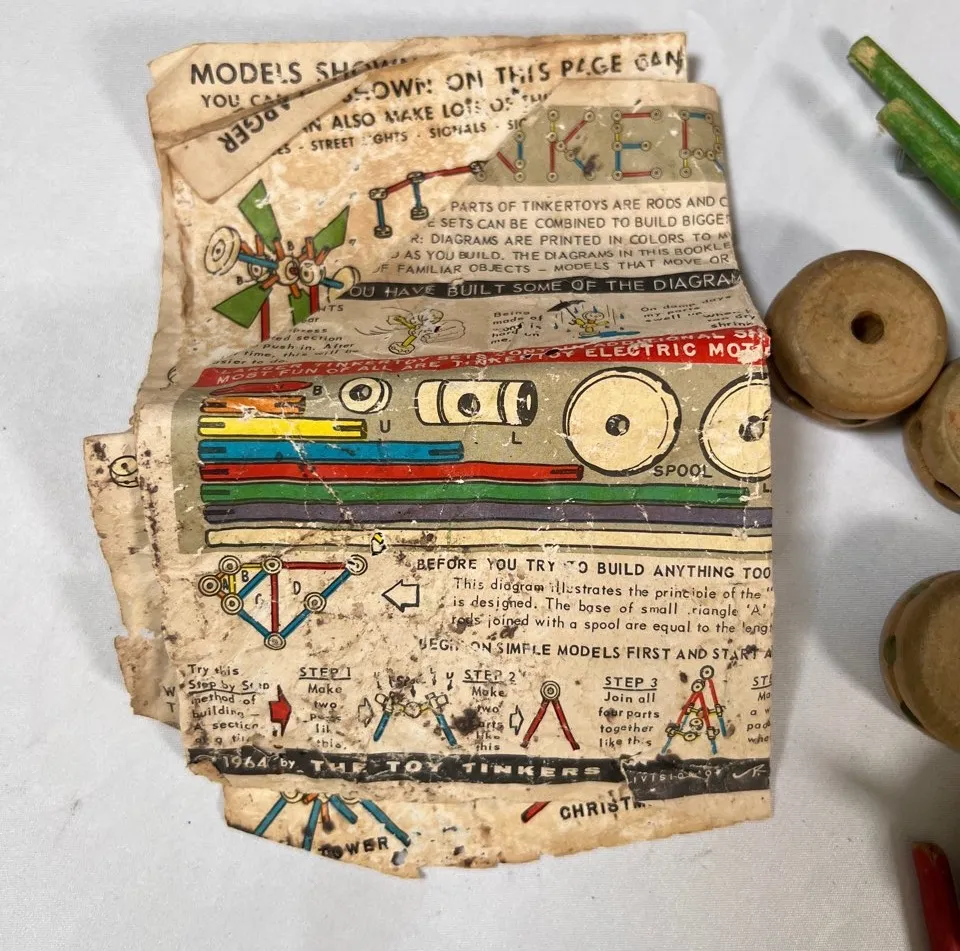 MODELS SHOWN
SHOWN ON THIS PAGE CAN
YOU CAN
ARGER
AN ALSO MAKE LOTS OF
ES - STREET LIGHTS - SIGNALS - SIG
NKER
PARTS OF TINKERTOYS ARE RODS AND C
E SETS CAN BE COMBINED TO BUILD BIGGE
R: DIAGRAMS ARE PRINTED IN COLORS TO M
U AS YOU BUILD. THE DIAGRAMS IN THIS BOOKLE
OF FAMILIAR OBJECTS – MODELS THAT MOVE OR
OU HAVE BUILT SOME OF THE DIAGRAM
NTS
or
press
ed section
Push in. After
time, this will be
easier to do
Being
made of
wood is
hard on
me.
On damp days
my parts
swell when
dry
shrink
MOST FUN OF ALL ARE TINKERTOY ELECTRIC MOT
B
U
L
L
SPOOL
L
A B C D
BEFORE YOU TRY TO BUILD ANYTHING TOO
This diagram illustrates the principle of the "
is designed. The base of small triangle 'A'
rods joined with a spool are equal to the lengt
BEGIN ON SIMPLE MODELS FIRST AND START A
Try this
Step by Step
method of
building
A section
at a time
STEP 1
Make
two
parts
like
this.
STEP 2
Make
two
parts
like
this
STEP 3
Join all
four parts
together
like this
STE
Ma
a w
pad
whe
W
T
1964 by THE TOY TINKERS DIVISION OF
TOWER
CHRISTM